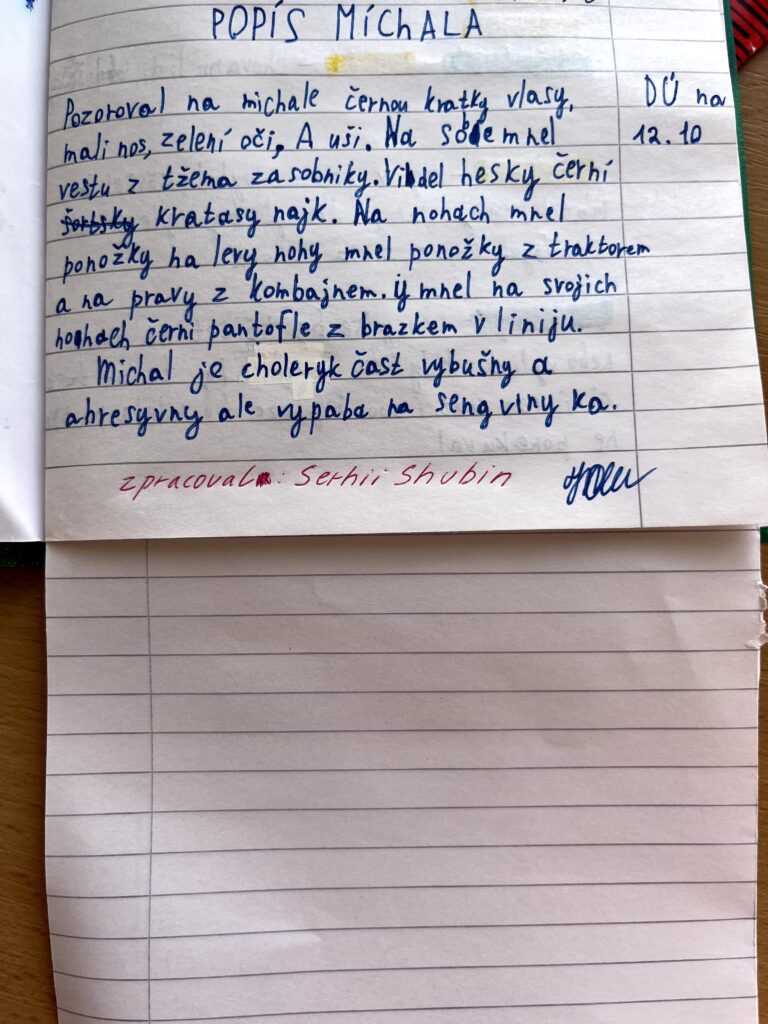 POPÍS MíCHALA
Pozoroval na michale černou kratky vlasy,
mali nos, zelení oči, A uši. Na sobe mnel
DÚ na
12.10
vestu z tžema zasobniky. Videl hesky černí
šortsky kratasy najk. Na nohach mnel
ponožky na levy nohy mnel ponožky z traktorem
a na pravy z kombajnem. ij mnel na svojich
nohach černi pantofle z brazkem v liniju.
Michal je choleryk čast vybušny a
ahresyvny ale vypaba na sengviny ka.
zpracoval: Serhii Shubin